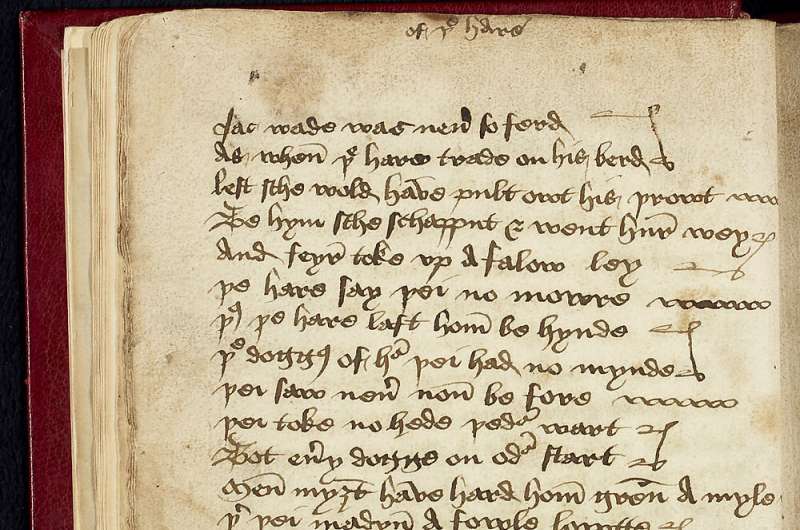 of þe hare
Jac wade was neũ so ferd
As when̄ þe hare trade on his berd
lest sche wold haue pult owt his þrowt
Be hym sche schapput & went hur wey
And feyr toke vp A falow ley
þe hare say þei no mowre
þus þe hare laft hom̄ be hynde
þe doggus of hr þei had no mynde
þei saw neũ non̄ be fore
þei toke no hede þedr wart
Bot eũy dogge on odr start
Men̄ myȝt haue hard hom̄ gren̄ A myle
þr þei madyn̄ A fowle lowtte